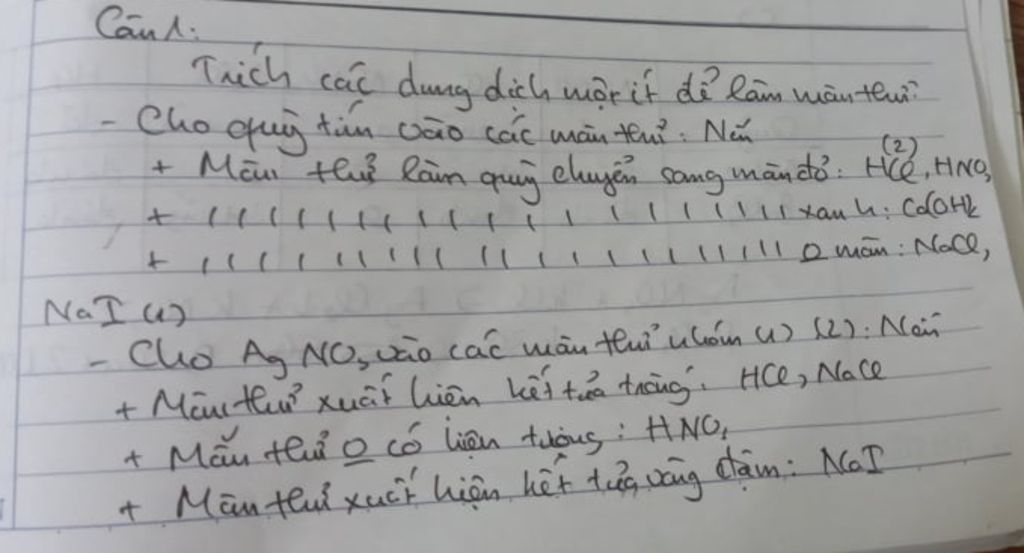 Câu 1:
Trích các dung dịch một ít để làm mẫu thử.
- Cho quỳ tím vào các mẫu thử: Nếu
(2)
+ Mẫu thử làm quỳ chuyển sang màu đỏ: HCl, HNO3
+ ( ( ( ( ( ( ( ( ( ( ( ( ( ( ( ( ( ( ( ( xanh: Ca(OH)2
+ ( ( ( ( ( ( ( ( ( ( ( ( ( ( ( ( ( ( ( ( 0 màu: NaCl,
NaI (1)
- Cho AgNO3 vào các mẫu thử nhóm (1) (2): Nếu
+ Mẫu thử xuất hiện kết tủa trắng: HCl, NaCl
+ Mẫu thử 0 có hiện tượng: HNO3
+ Mẫu thử xuất hiện kết tủa vàng đậm: NaI